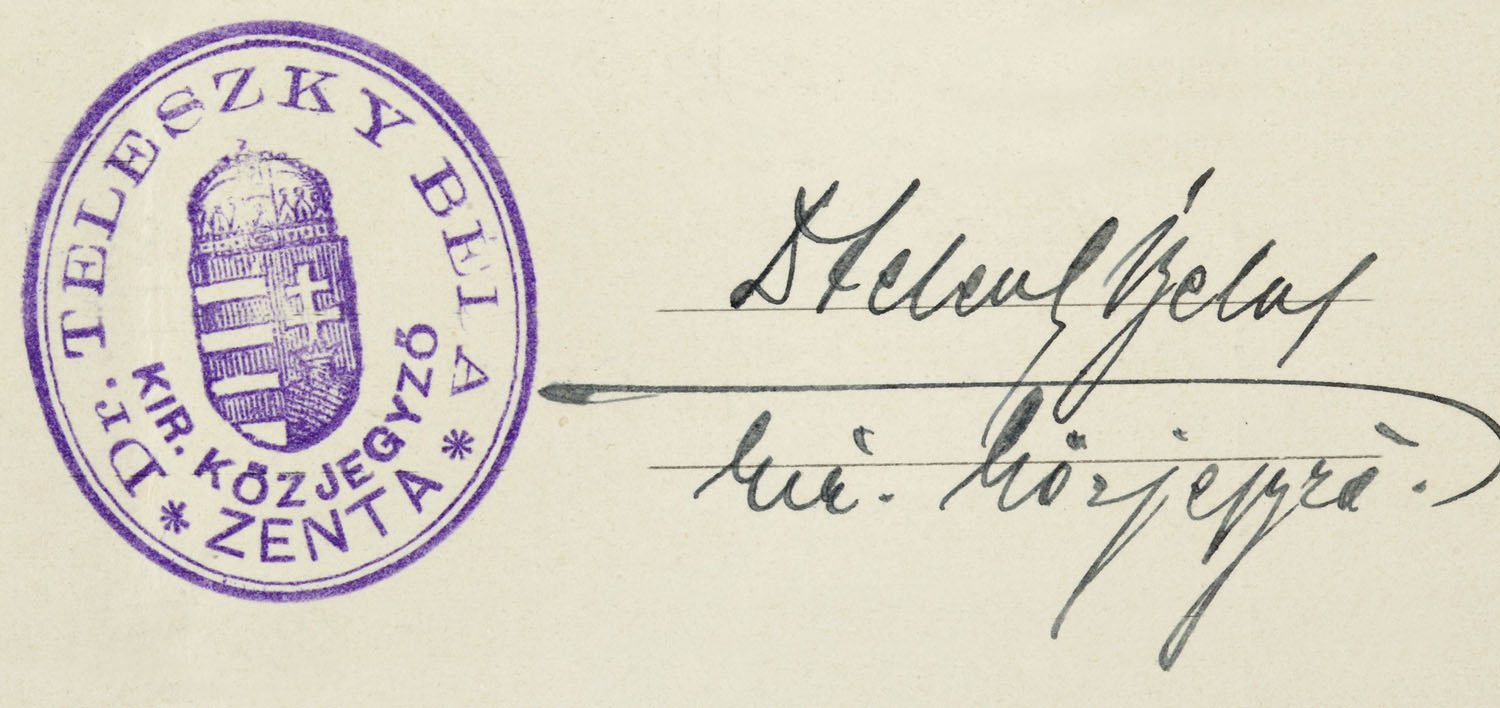 Dr. TELESZKY BÉLA
KIR. KÖZJEGYZŐ
* ZENTA *
Dr Teleszky Béla
kir. közjegyző.